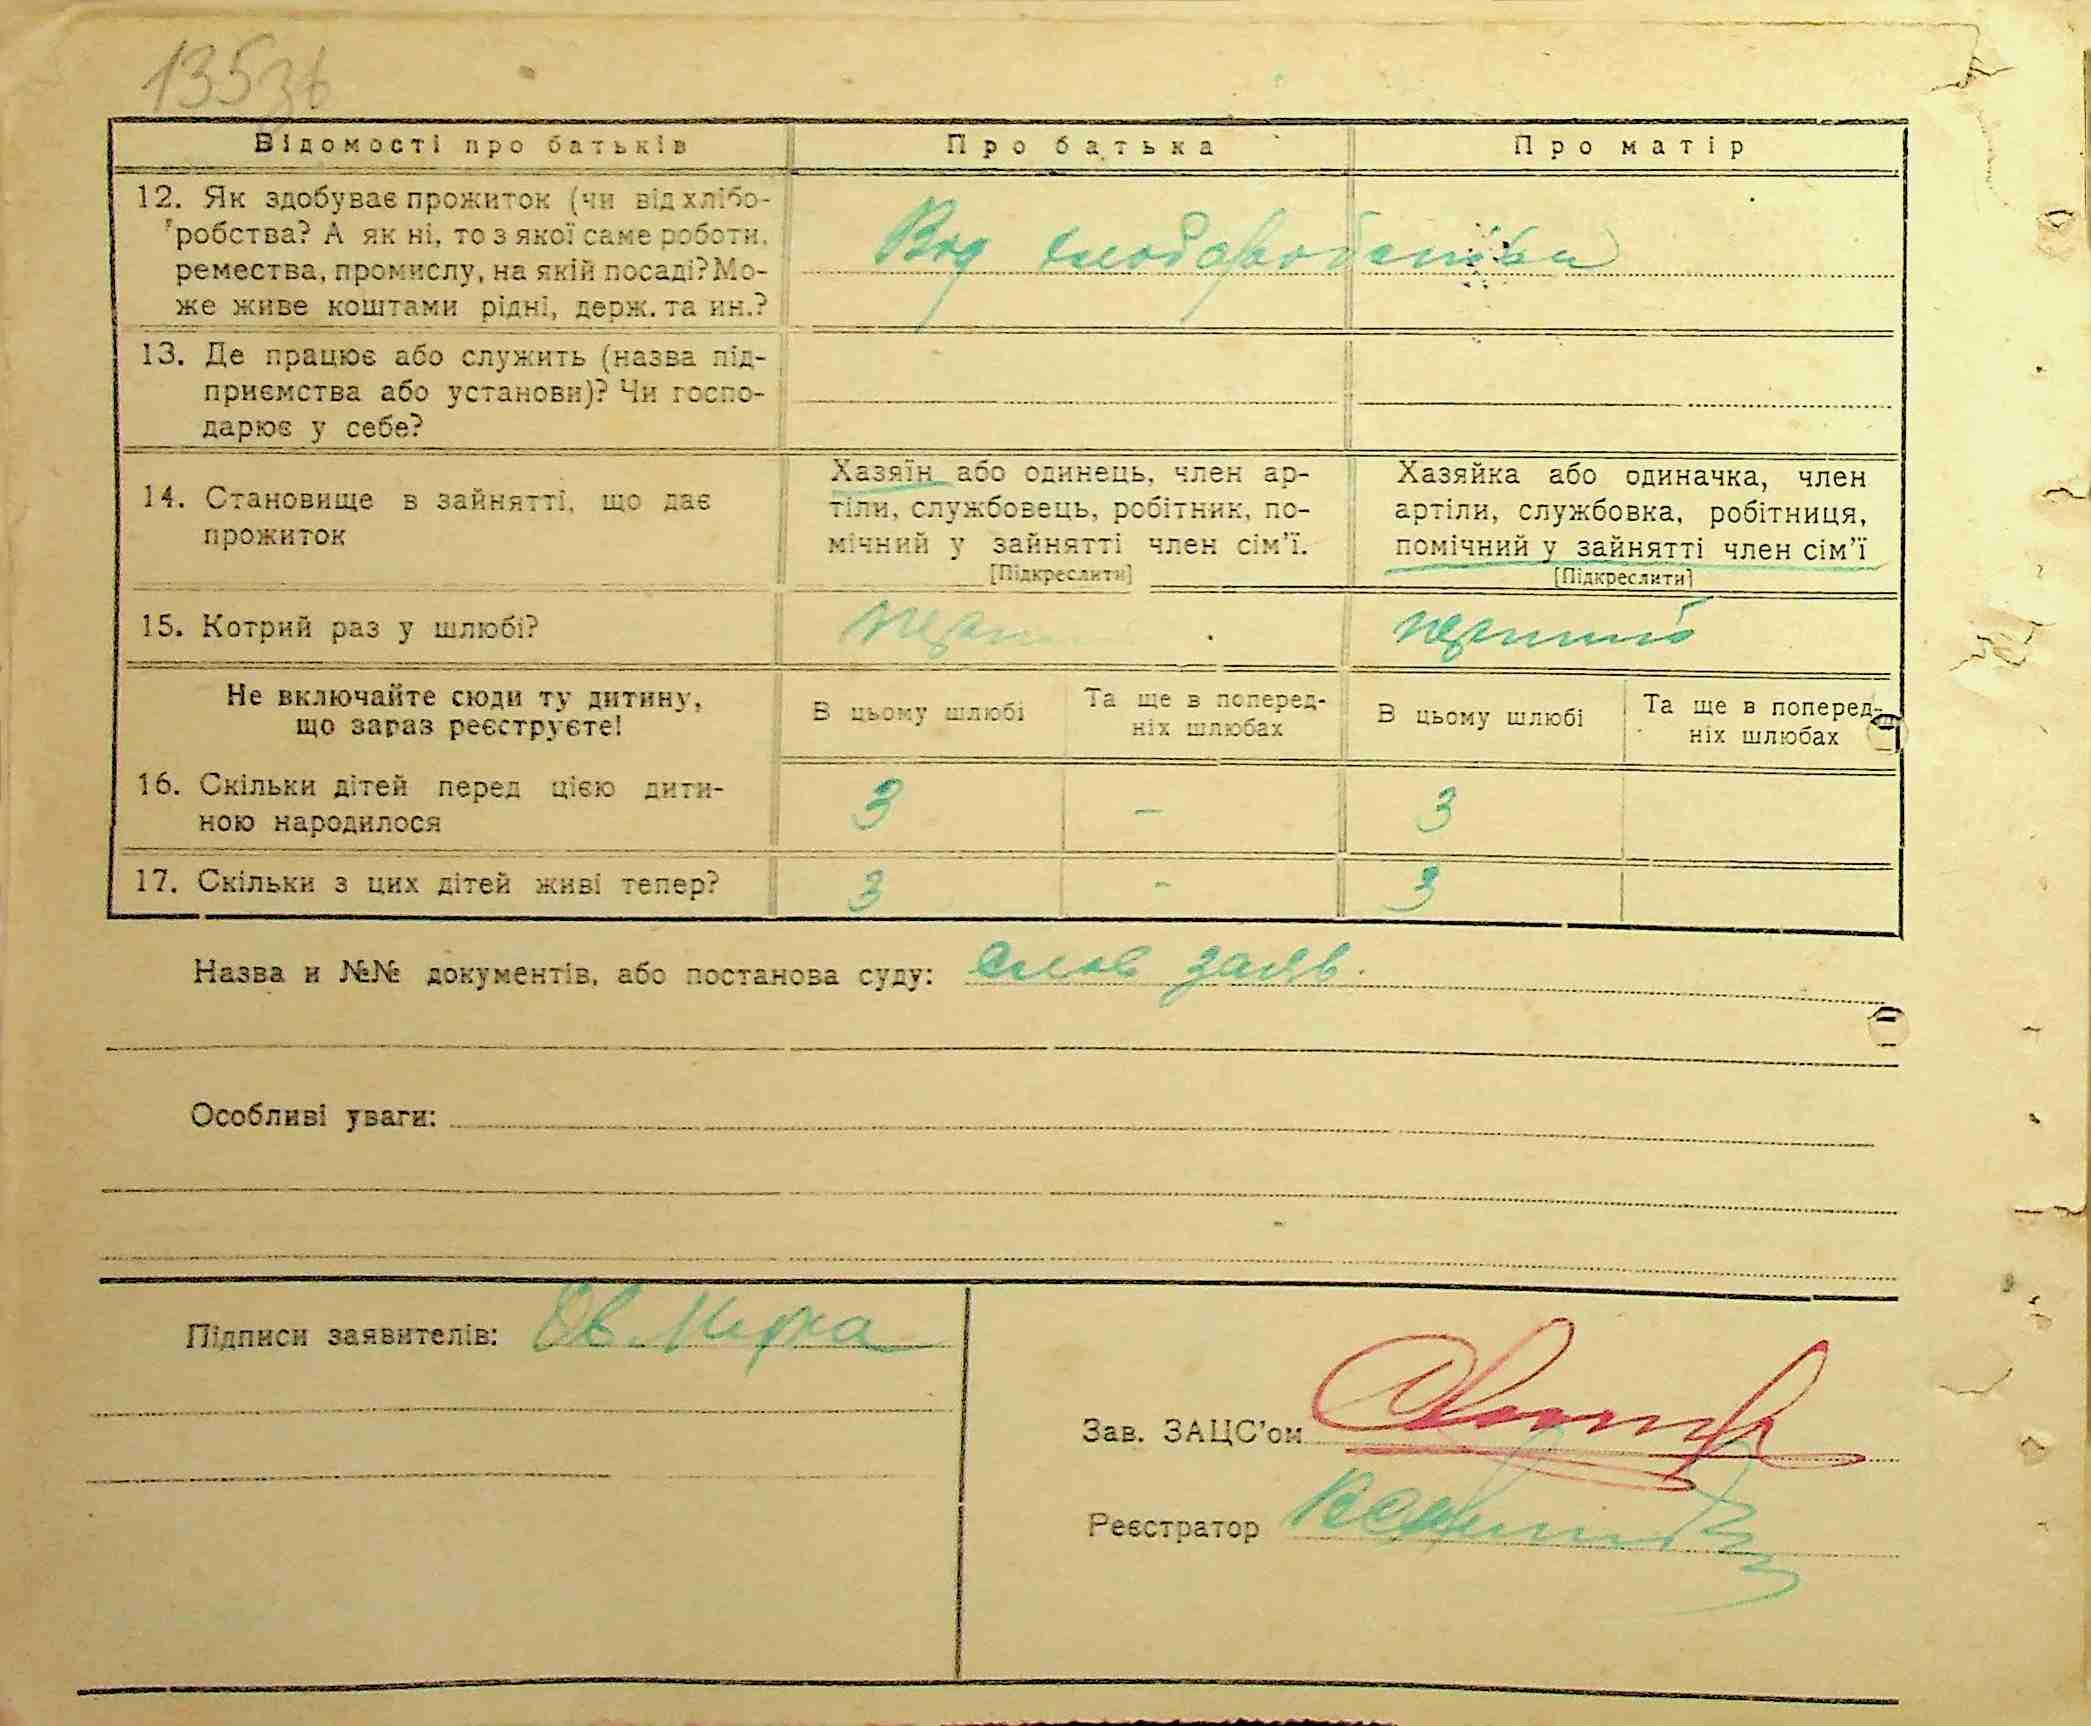 135зв
Відомості про батьків
Про батька
Про матір
12. Як здобуває прожиток (чи від хлібо-
робства? А як ні, то з якої саме роботи,
ремества, промислу, на якій посаді? Мо-
же живе коштами рідні, держ. та ин.?
Від хлібаробства
13. Де працює або служить (назва під-
приємства або установи)? Чи госпо-
дарює у себе?
14. Становище в зайнятті, що дає
прожиток
Хазяїн або одинець, член ар-
тіли, службовець, робітник, по-
мічний у зайнятті член сім'ї.
[Підкреслити]
Хазяйка або одиначка, член
артіли, службовка, робітниця,
помічний у зайнятті член сім'ї
[Підкреслити]
15. Котрий раз у шлюбі?
перший
Не включайте сюди ту дитину,
що зараз реєструєте!
В цьому шлюбі
Та ще в поперед-
ніх шлюбах
В цьому шлюбі
Та ще в поперед-
ніх шлюбах
16. Скільки дітей перед цією дити-
ною народилося
3 - 3
17. Скільки з цих дітей живі тепер?
3 - 3
Назва и №№ документів, або постанова суду: слов заяв.
Особливі уваги:
Підписи заявителів:
Зав. ЗАЦС'ом
Реєстратор